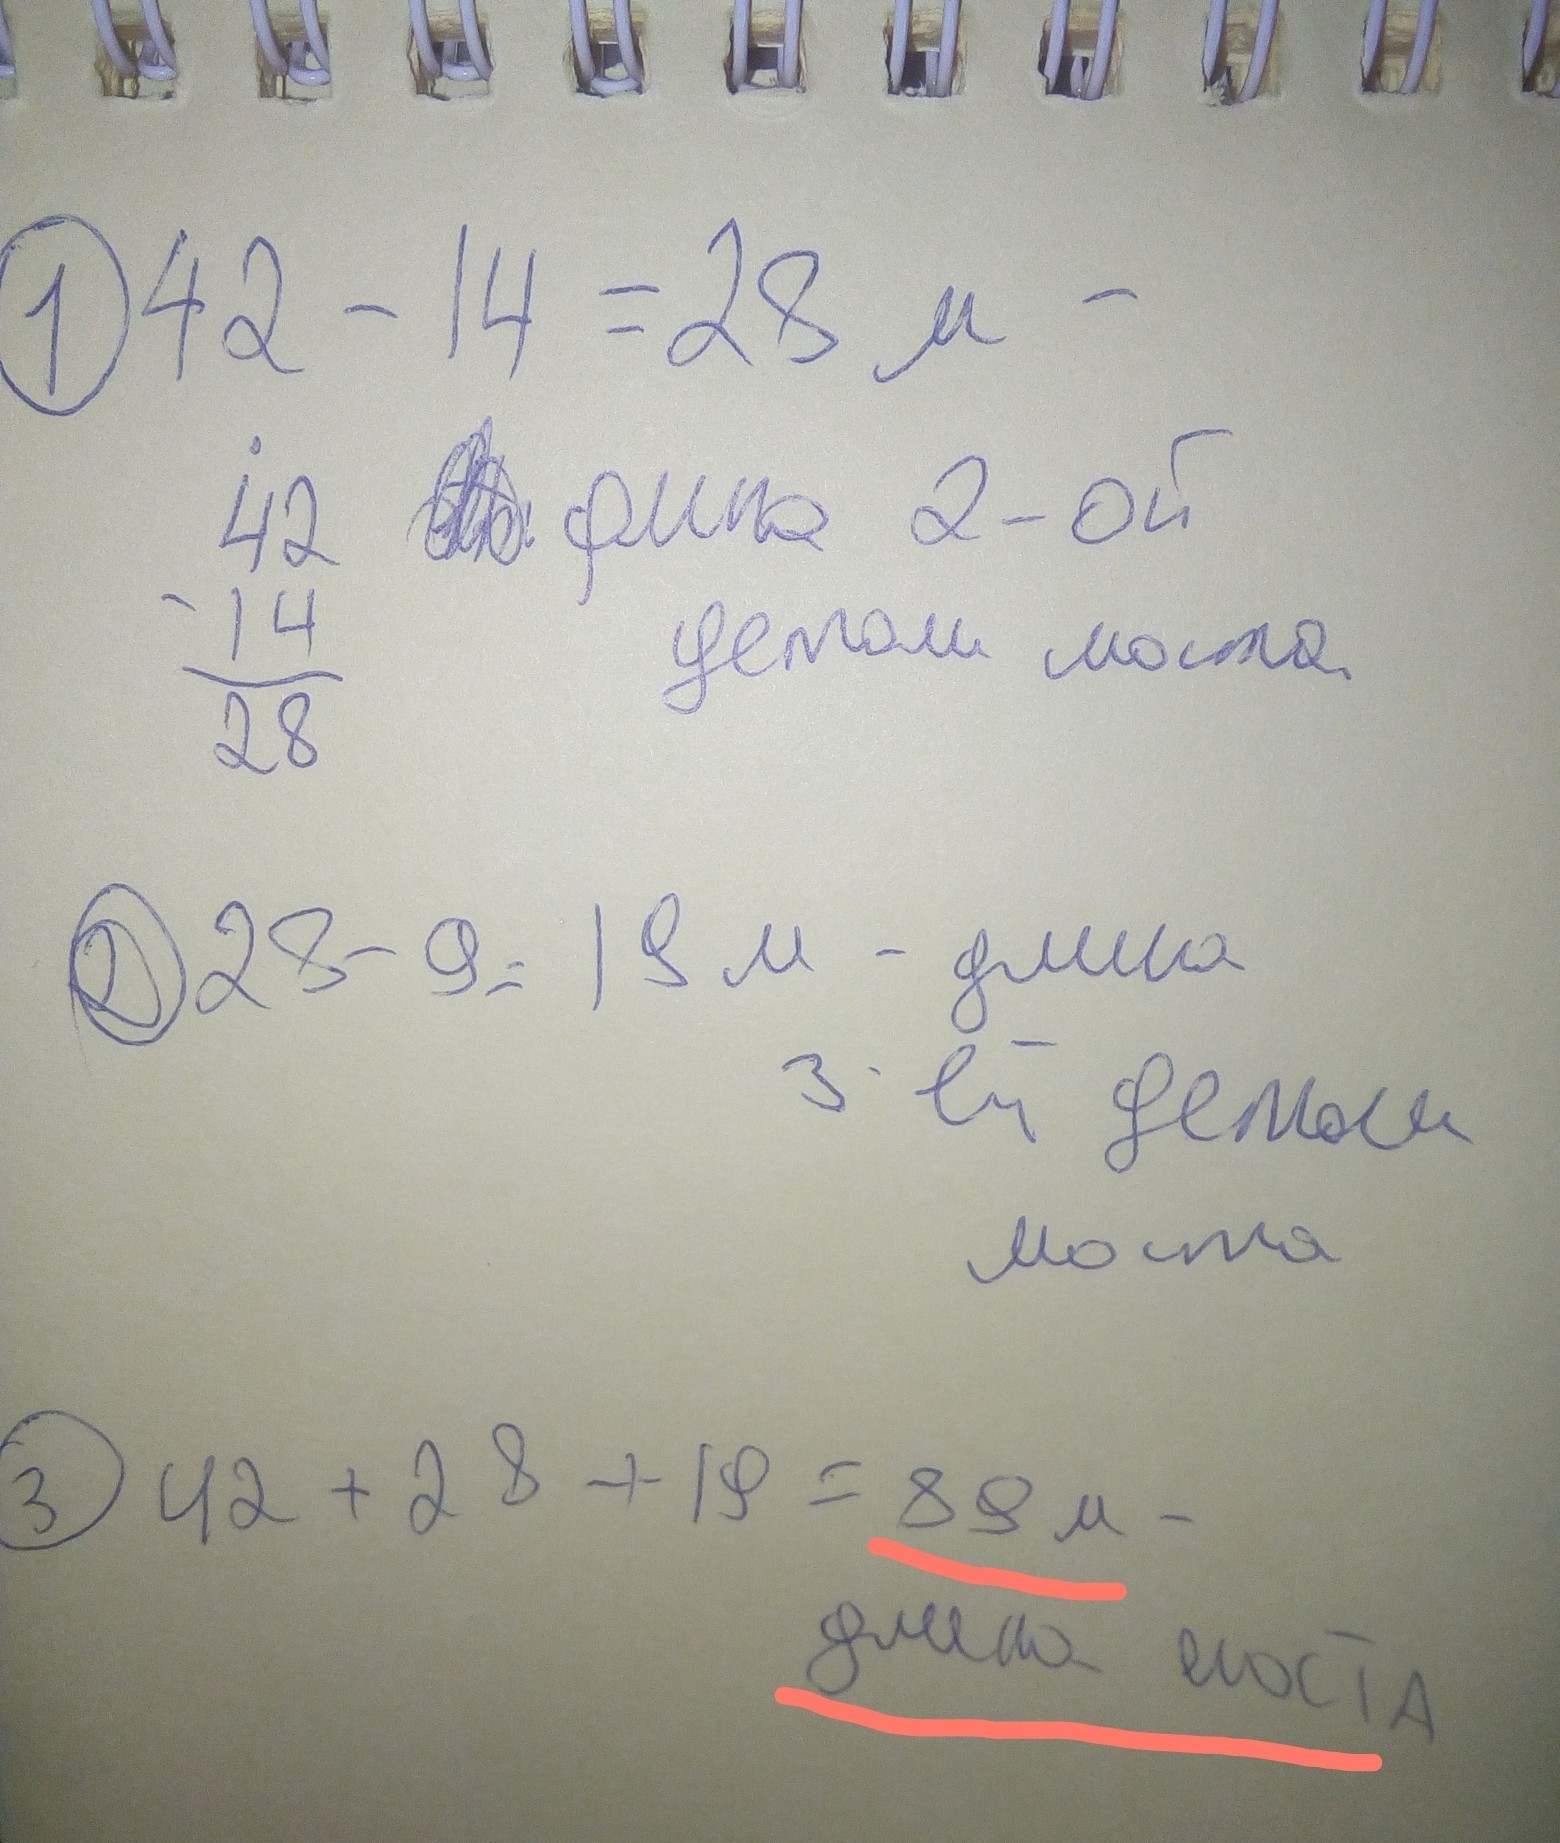 1 42 - 14 = 28 м -
42 длина 2-ой
- 14 детали моста.
28
2 28 - 9 = 19 м - длина
3-ей детали
моста
3 42 + 28 + 19 = 89 м -
длина мостА